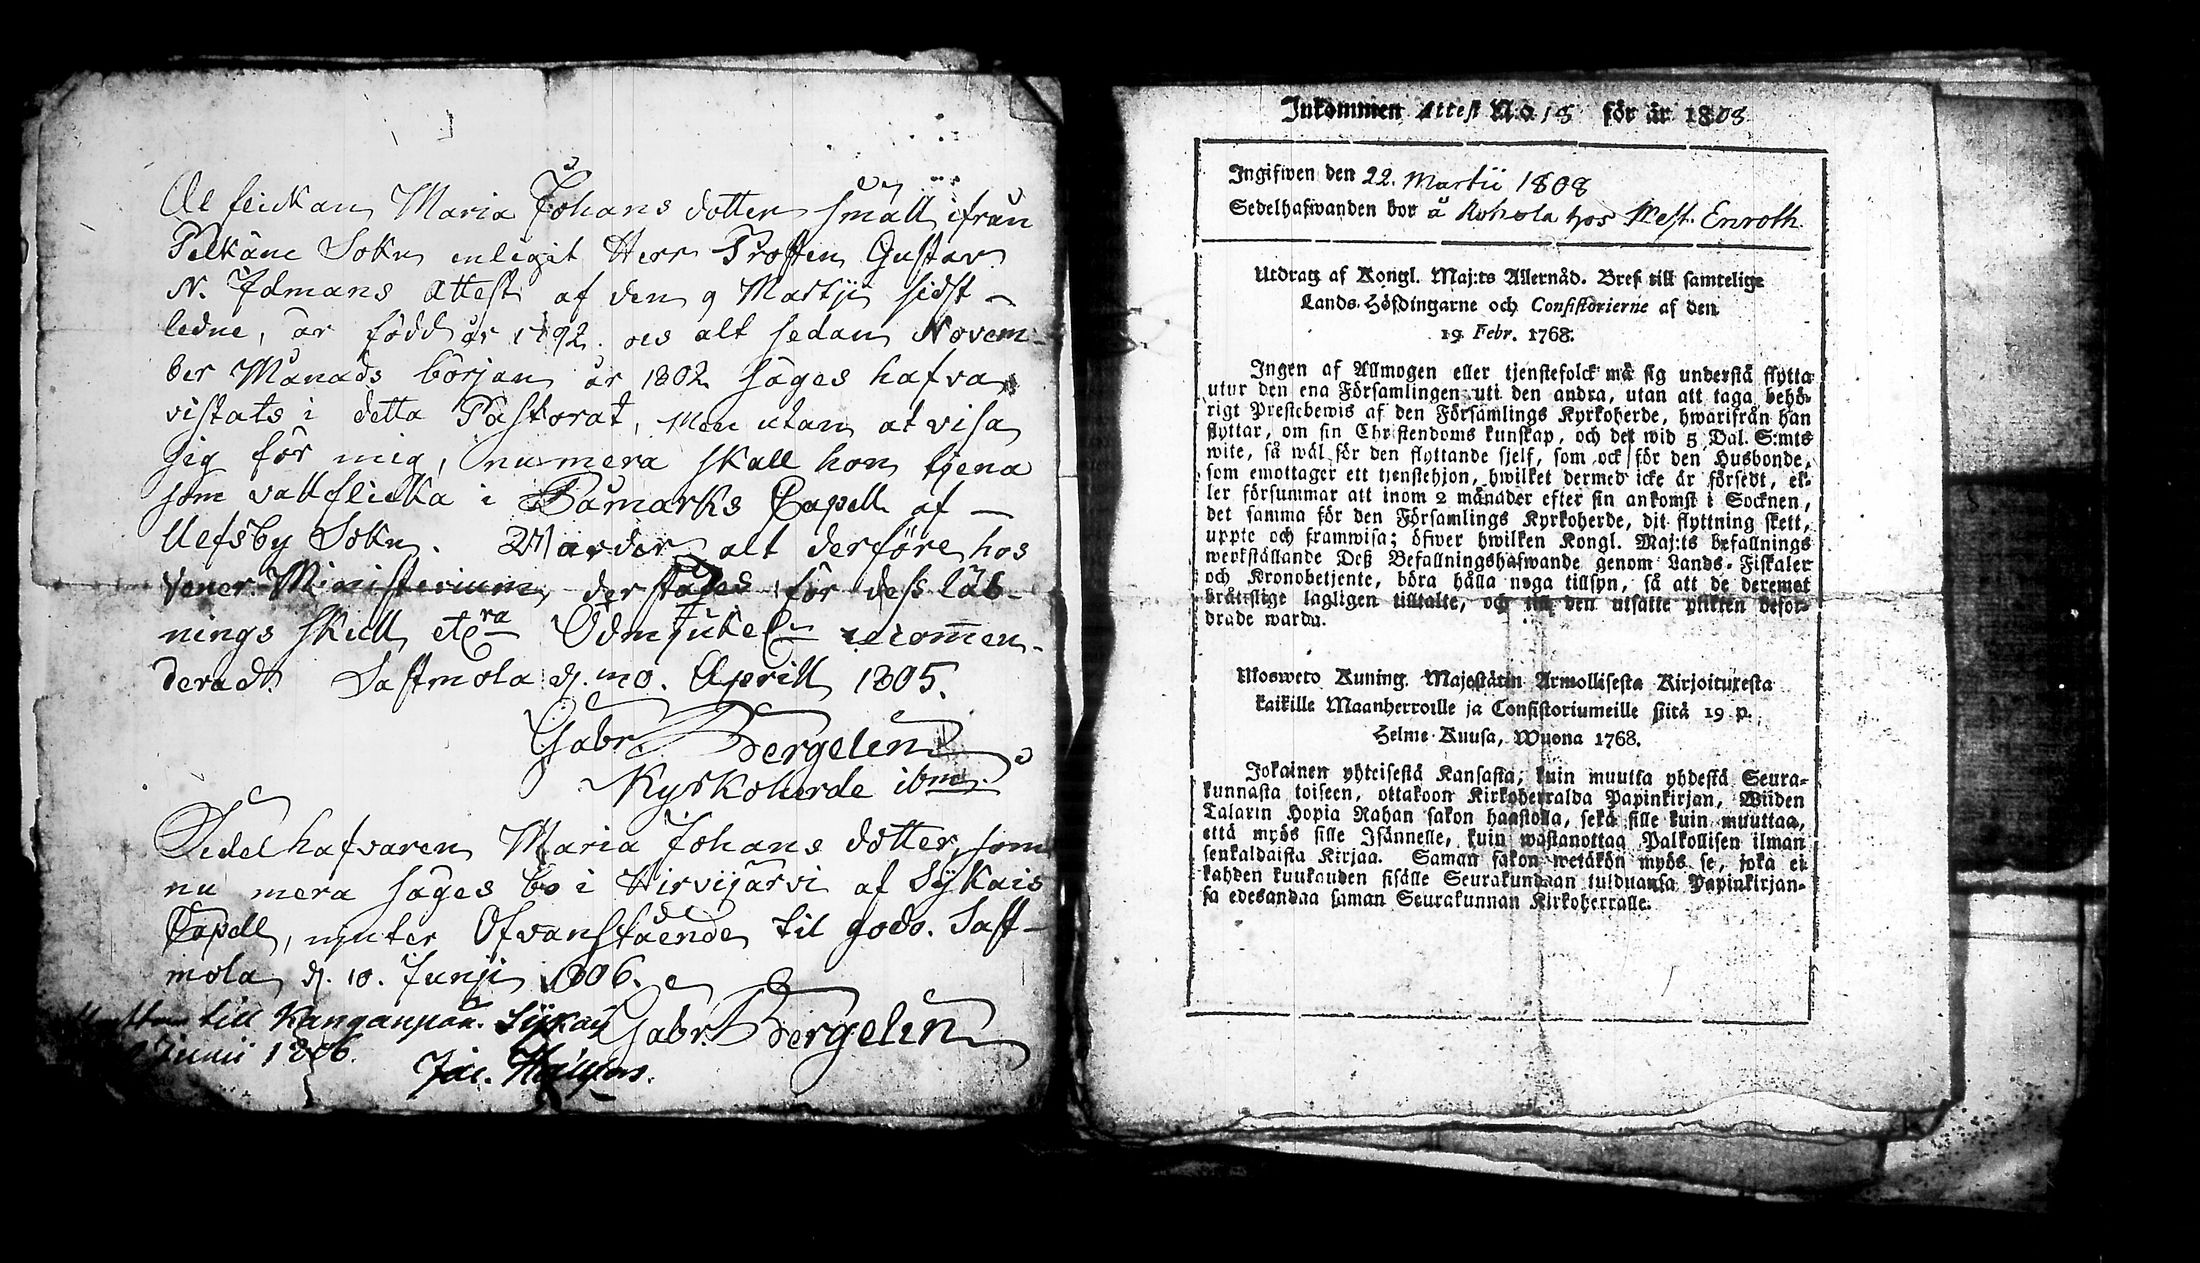 At flickan Maria Johans dotter Småll ifrån
Pelkäne Sokn enligit Herr Prosten Gustav
N. Idmans Attest af den 9 Martji sidst-
ledne, är född år 1792. ock alt sedan Novem-
ber Månads början år 1802 säges hafva
vistats i detta Pastorat, Men utan at visa
sig för mig, numera skall hon tjena
som vallflicka i Påmarks Capell af
Ulfsby Sokn. Warder alt derföre hos
Vener. Ministerium derstädes för dess läs-
nings skull etcra Ödmjukel recommen-
derad. Sastmola d. mo. Aprill 1805.
Gabr. Bergelin
Kyrkoherde ibm.
Sedelhafvaren Maria Johans dotter, som
nu mera säges bo i Hirvijärvi af Sykais
Capell, njuter Ofvanstående til godo. Sast-
mola d. 10. Junji 1806.
Gabr. Bergelin
till Kanganpää. Sykais
Junii 1806.
Jac.
Inkommen Attest N:o 18 för år 1808
Ingifwen den 22. Martii 1808
Sedelhafwanden bor å Rohola hos Mest. Enroth.
Utdrag af Kongl. Maj:ts Allernåd. Bref till samtelige
Lands-Höfdingarne och Consistorierne af den
19 Febr. 1768.
Ingen af Allmogen eller tjenstefolck må sig understå flytta
utur den ena Församlingen uti den andra, utan att taga behö-
rigt Prestebewis af den Församlings Kyrkoherde, hwarifrån han
flyttar, om sin Christendoms kunskap, och det wid 5 Dal. S:mts
wite, så wäl för den flyttande sjelf, som ock för den Husbonde,
som emottager ett tjenstehjon, hwilket dermed icke är försedt, el-
ler försummar att inom 2 månader efter sin ankomst i Socknen,
det samma för den Församlings Kyrkoherde, dit flyttning skett,
uppte och framwisa; öfwer hwilken Kongl. Maj:ts befallnings
werkställande Deß Befallningshafwande genom Lands-Fiskaler
och Kronobetjente, böra hålla noga tillsyn, så att de deremot
brätslige lagligen tilltalte, och till den utsatte plikten befor-
drade warda.
Ulosweto Kuning. Majestätin Armollisesta Kirjoituxesta
kaikille Maanherroille ja Consistoriumeille siitä 19 p.
Helme-Kuusa, Wuona 1768.
Jokainen yhteisestä Kansasta, kuin muutta yhdestä Seura-
kunnasta toiseen, ottakoon Kirkoherralda Papinkirjan, Wiiden
Talarin Hopia Rahan sakon haastolla, sekä sille kuin muuttaa,
että myös sille Isännelle, kuin wastanottaa Palkollisen ilman
senkaldaista Kirjaa. Saman sakon wetäkön myös se, joka ei
kahden kuukauden sisälle Seurakundaan tulduansa Papinkirjan-
sa edesandaa saman Seurakunnan Kirkoherralle.